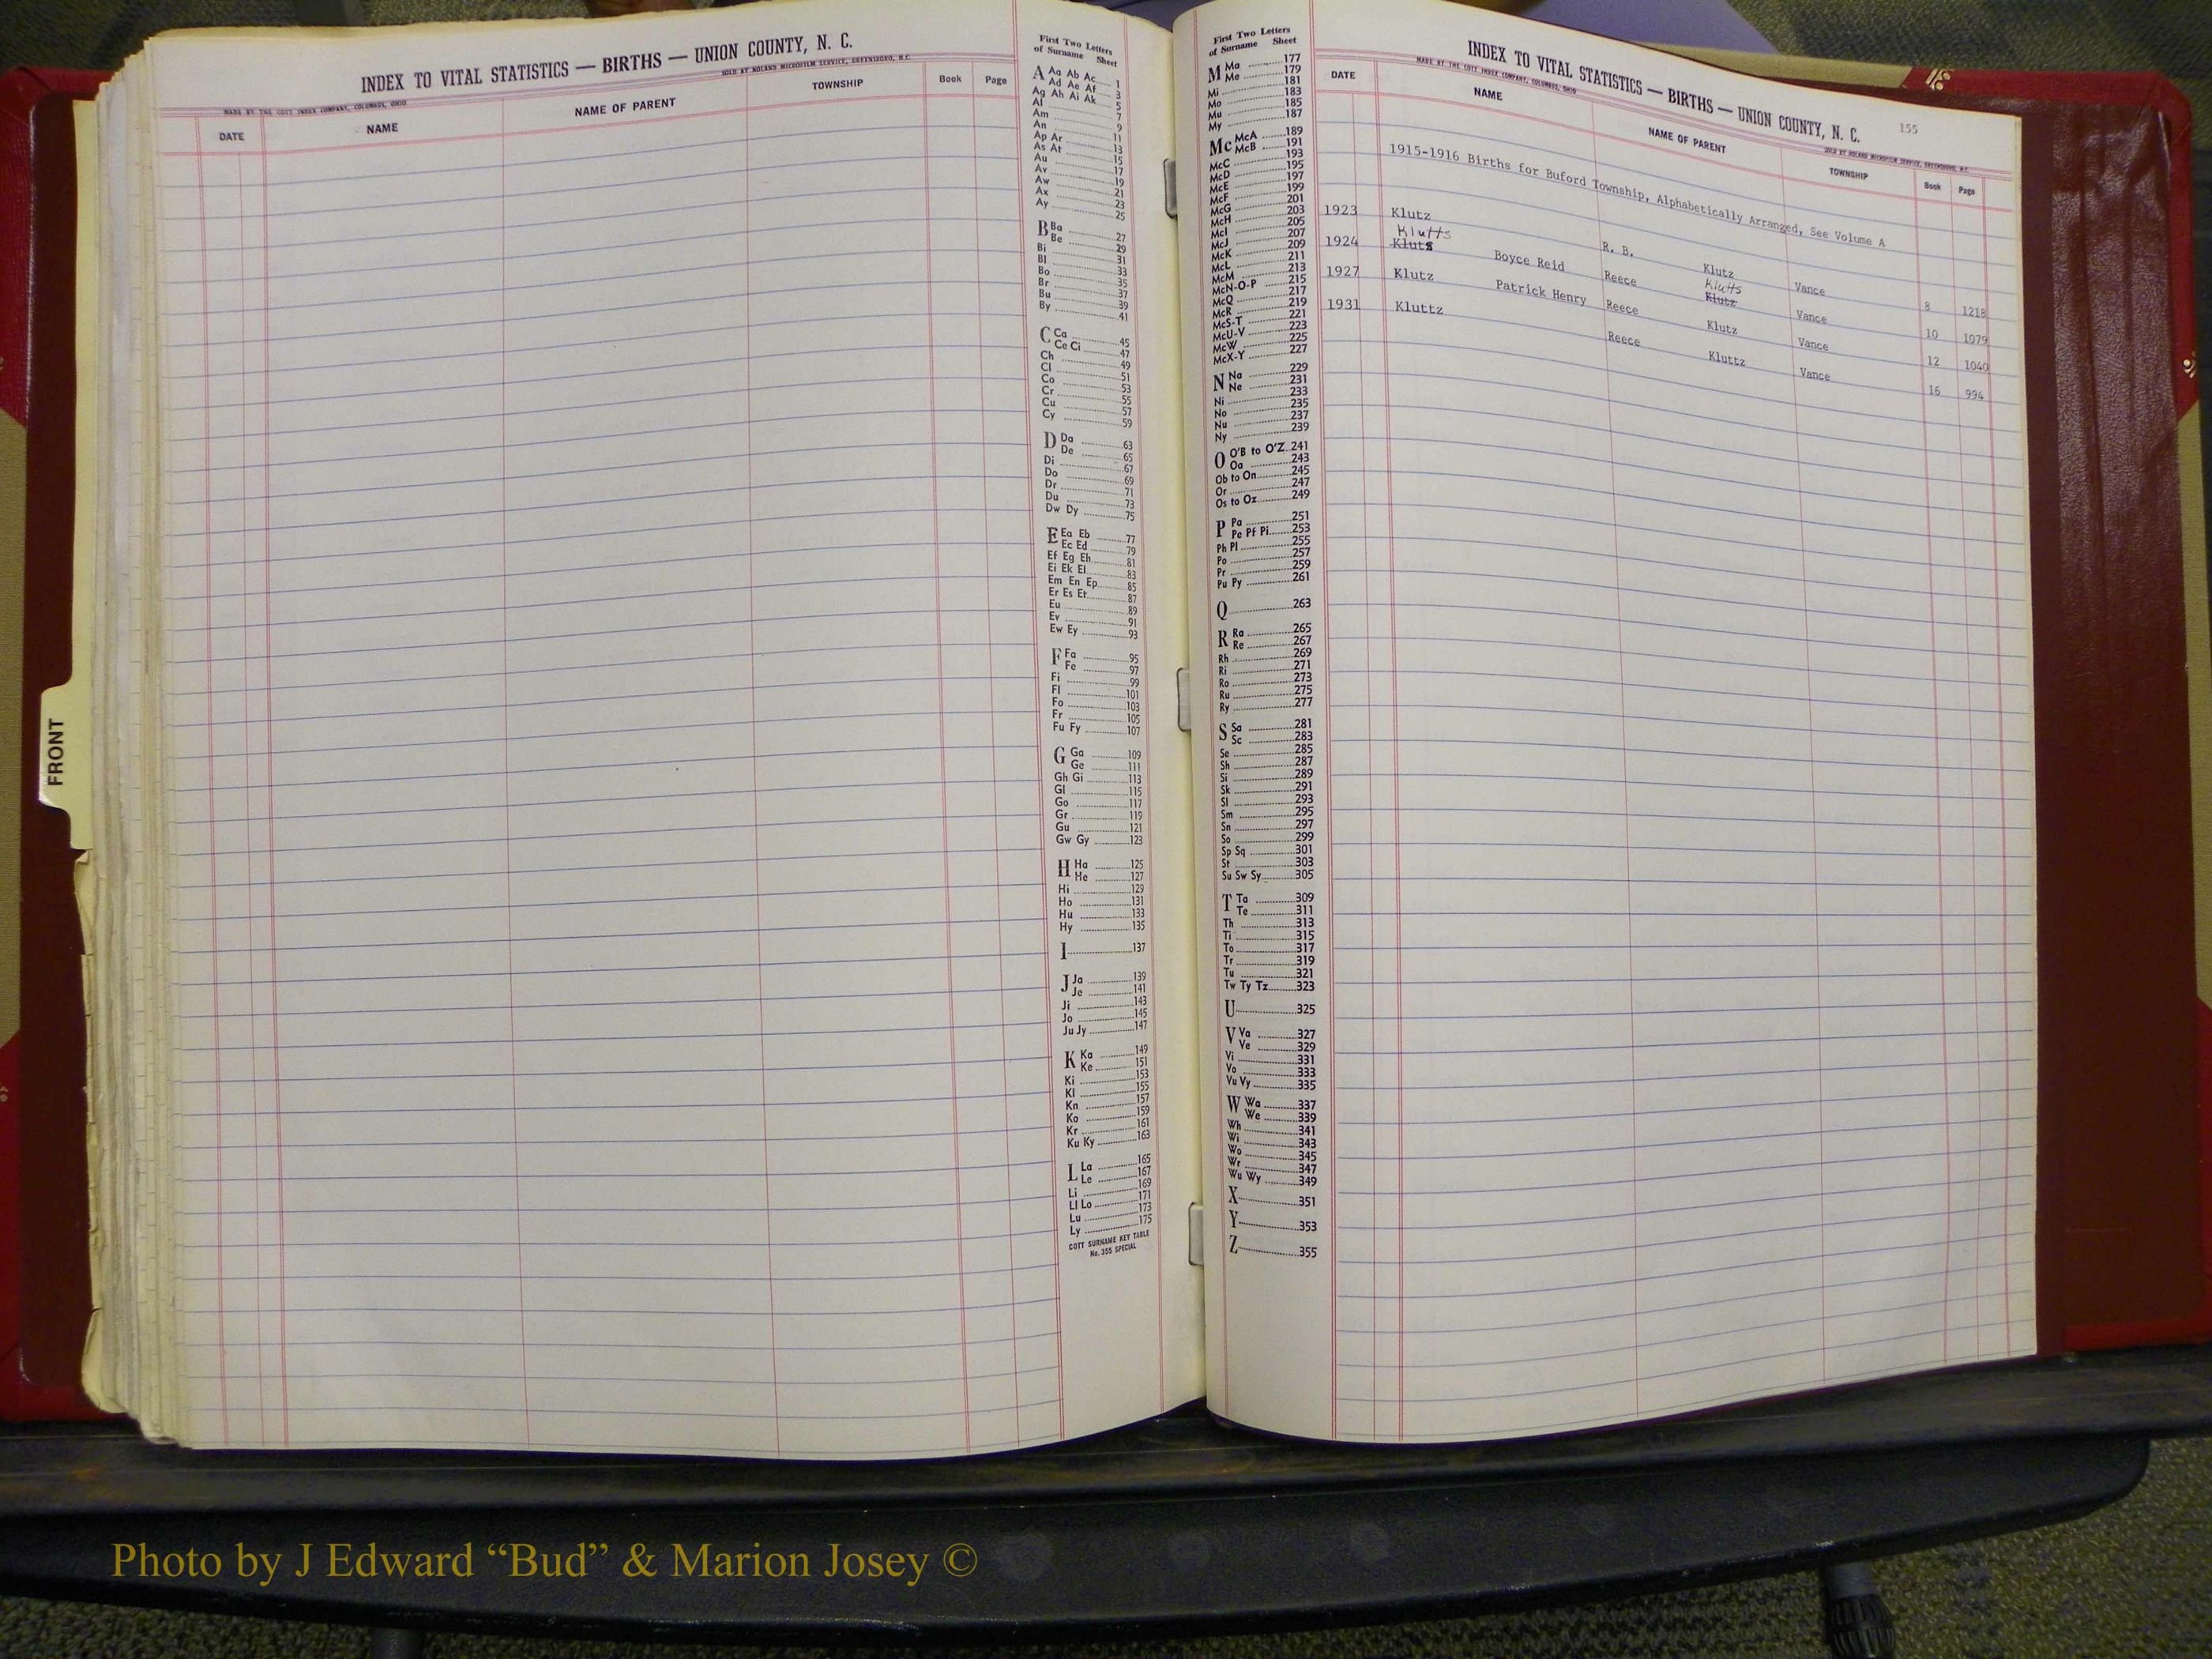 INDEX TO VITAL STATISTICS — BIRTHS — UNION COUNTY, N. C.
MADE BY THE COTT INDEX COMPANY, COLUMBUS, OHIO
SOLD BY NOLAND MICROFILM SERVICE, GREENSBORO, N.C.
DATE NAME NAME OF PARENT TOWNSHIP Book Page
First Two Letters
of Surname Sheet
A Aa Ab Ac 1
Ad Ae Af 3
Ag Ah Ai Ak 5
Al 7
Am 9
An 11
Ap Ar 13
As At 15
Au 17
Av 19
Aw 21
Ax 23
Ay 25
B Ba 27
Be 29
Bi 31
Bl 33
Bo 35
Br 37
Bu 39
By 41
C Ca 45
Ce Ci 47
Ch 49
Cl 51
Co 53
Cr 55
Cu 57
Cy 59
D Da 63
De 65
Di 67
Do 69
Dr 71
Du 73
Dw Dy 75
E Ea Eb 77
Ec Ed 79
Ef Eg Eh 81
Ei Ek El 83
Em En Ep 85
Er Es Et 87
Eu 89
Ev 91
Ew Ey 93
F Fa 95
Fe 97
Fi 99
Fl 101
Fo 103
Fr 105
Fu Fy 107
G Ga 109
Ge 111
Gh Gi 113
Gl 115
Go 117
Gr 119
Gu 121
Gw Gy 123
H Ha 125
He 127
Hi 129
Ho 131
Hu 133
Hy 135
I 137
J Ja 139
Je 141
Ji 143
Jo 145
Ju Jy 147
K Ka 149
Ke 151
Ki 153
Kl 155
Kn 157
Ko 159
Kr 161
Ku Ky 163
L La 165
Le 167
Li 169
Ll Lo 171
Lu 173
Ly 175
COTT SURNAME KEY TABLE
No. 355 SPECIAL
FRONT
First Two Letters
of Surname Sheet
M Ma 177
Me 179
Mi 181
Mo 183
Mu 185
My 187
Mc McA 189
McB 191
McC 193
McD 195
McE 197
McF 199
McG 201
McH 203
McI 205
McJ 207
McK 209
McL 211
McM 213
McN-O-P 215
McQ 217
McR 219
McS-T 221
McU-V 223
McW 225
McX-Y 227
N Na 229
Ne 231
Ni 233
No 235
Nu 237
Ny 239
O O'B to O'Z 241
Oa 243
Ob to On 245
Or 247
Os to Oz 249
P Pa 251
Pe Pf Pi 253
Ph Pl 255
Po 257
Pr 259
Pu Py 261
Q 263
R Ra 265
Re 267
Rh 269
Ri 271
Ro 273
Ru 275
Ry 277
S Sa 281
Sc 283
Se 285
Sh 287
Si 289
Sk 291
Sl 293
Sm 295
Sn 297
So 299
Sp Sq 301
St 303
Su Sw Sy 305
T Ta 309
Te 311
Th 313
Ti 315
To 317
Tr 319
Tu 321
Tw Ty Tz 323
U 325
V Va 327
Ve 329
Vi 331
Vo 333
Vu Vy 335
W Wa 337
We 339
Wh 341
Wi 343
Wo 345
Wr 347
Wu Wy 349
X 351
Y 353
Z 355
INDEX TO VITAL STATISTICS — BIRTHS — UNION COUNTY, N. C. 155
MADE BY THE COTT INDEX COMPANY, COLUMBUS, OHIO
SOLD BY NOLAND MICROFILM SERVICE, GREENSBORO, N.C.
DATE NAME NAME OF PARENT TOWNSHIP Book Page
1915-1916 Births for Buford Township, Alphabetically Arranged, See Volume A
1923 Klutz R. B. Klutz Vance 8 1218
Klutts Klutts
1924 Kluts Boyce Reid Reece Klutz Vance 10 1079
1927 Klutz Patrick Henry Reece Klutz Vance 12 1040
1931 Kluttz Reece Kluttz Vance 16 994
Photo by J Edward “Bud” & Marion Josey ©